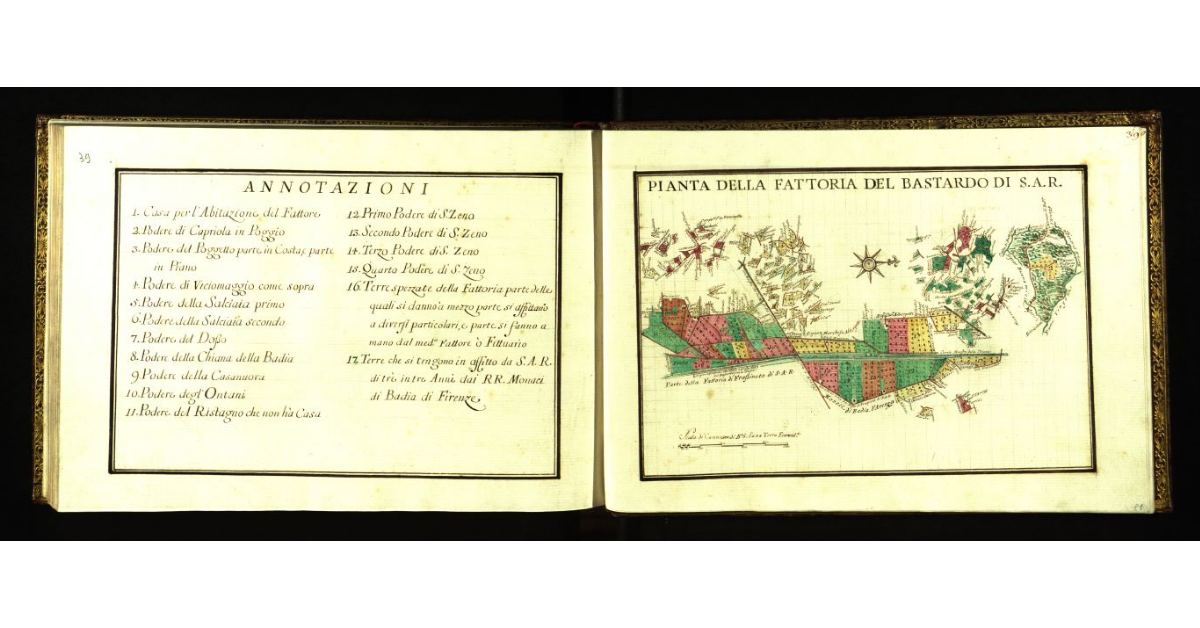 39
ANNOTAZIONI
1. Casa per l'Abitazione del Fattore
2. Podere di Capriola in Poggio
3. Podere del Poggetto parte in Costa, e parte
in Piano
4. Podere di Viciomaggio come sopra
5. Podere della Salciaia primo
6. Podere della Salciaia secondo
7. Podere del Dosso
8. Podere della Chiana della Badia
9. Podere della Casanuova
10. Podere degl'Ontani
11. Podere del Ristagno che non hà Casa
12. Primo Podere di S. Zeno
13. Secondo Podere di S. Zeno
14. Terzo Podere di S. Zeno
15. Quarto Podere di S. Zeno
16. Terre spezzate della Fattoria parte delle
quali si danno a mezzo parte si affittano
a diversi particolari, e parte si fanno a
mano dal med.º Fattore ò Fittuario
17. Terre che si tengono in affitto da S.A.R.
di trè in tre Anni dai RR. Monaci
di Badia di Firenze
PIANTA DELLA FATTORIA DEL BASTARDO DI S.A.R.
Parte della Fattoria di Frassineto di S.A.R
Monache di Badia d'Arezzo
Scala di Canne